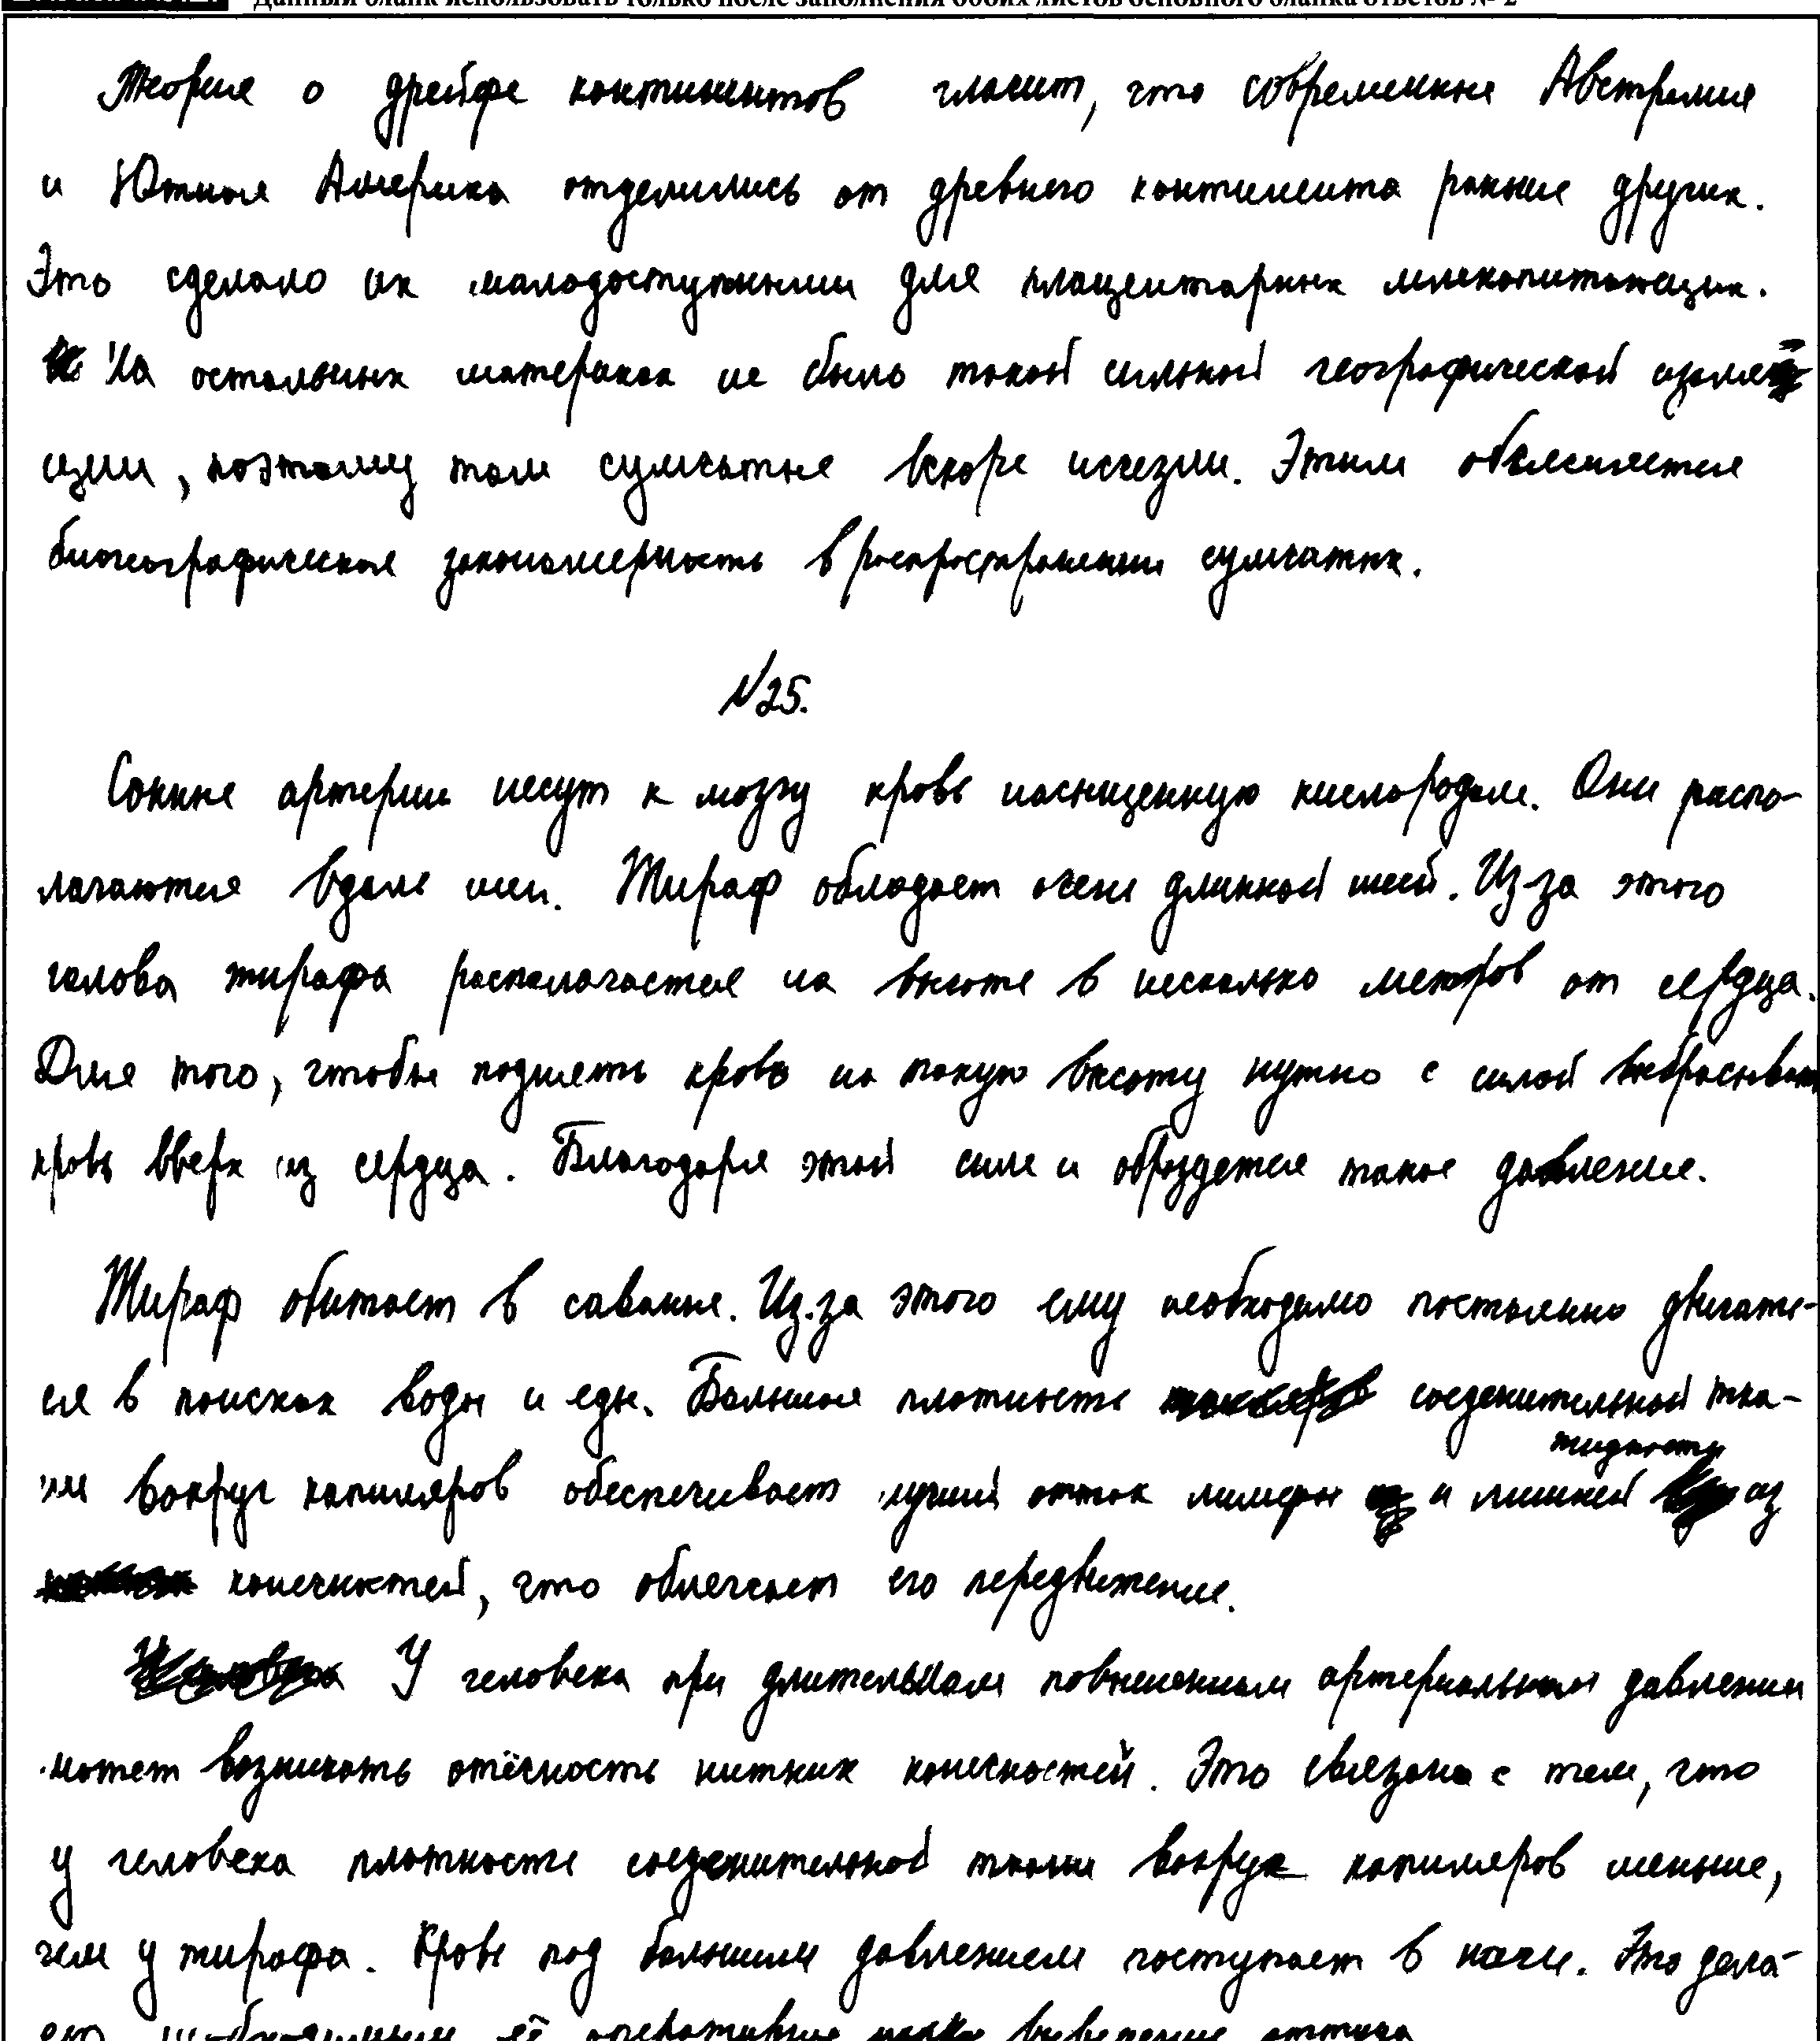 Данный бланк использовать только после заполнения обоих листов основного бланка ответов № 2
Теория о дрейфе континентов гласит, что современные Австралия
и Южная Америка отделились от древнего континента раньше других.
Это сделало их малодоступными для плацентарных млекопитающих.
На остальных материках не было такой сильной географической изоля
ции, поэтому там сумчатые вскоре исчезли. Этим объясняется
биогеографическая закономерность в распространении сумчатых.
№25.
Сонные артерии несут к мозгу кровь насыщенную кислородом. Они распо-
лагаются вдоль шеи. Жираф обладает очень длинной шеей. Из-за этого
голова жирафа располагается на высоте в несколько метров от сердца.
Для того, чтобы поднять кровь на такую высоту нужно с силой выбрасывать
кровь вверх из сердца. Благодаря этой силе и образуется такое давление.
Жираф обитает в саванне. Из-за этого ему необходимо постоянно двигать-
ся в поисках воды и еды. Большая плотность соединительной тка-
ни вокруг капиляров обеспечивает лучший отток лимфы и лишней жидкости из
конечностей, что облегчает его передвижение.
У человека при длительном повышенном артериальном давлении
может возникать отёчность нижних конечностей. Это связано с тем, что
у человека плотность соединительной ткани вокруг капиляров меньше,
чем у жирафа. Кровь под большим давлением поступает в ноги. Это дела-
ет её оперативное выведение оттуда